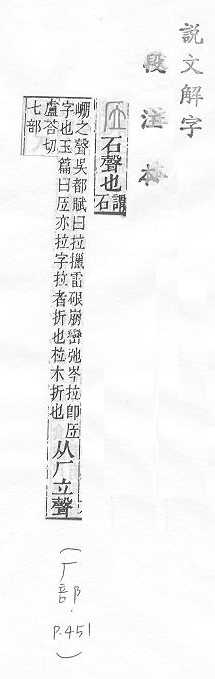 說文解字
段注
㕇石聲也謂
石
崩之聲吳都賦曰拉擸雷硠崩巒弛岑拉卽㕇
字也玉篇曰㕇亦拉字拉者折也柆木折也
从厂立聲
盧荅切
七部
(厂部.P.451)